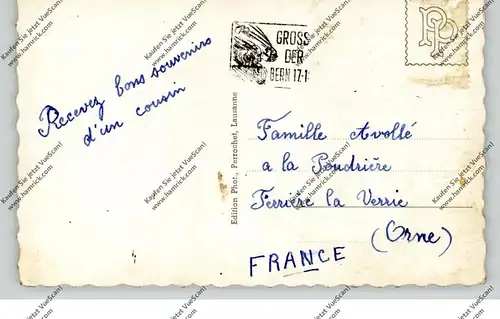 GROSS
DER
BERN 17-1
Recevez bons souvenirs
d'un cousin
Edition Phot. Perrochet, Lausanne
Famille Avollé
a la Poudrière
Ferrière la Verrie
(Orne)
FRANCE
Kaufen Sie jetzt VueScan!
www.hamrick.com